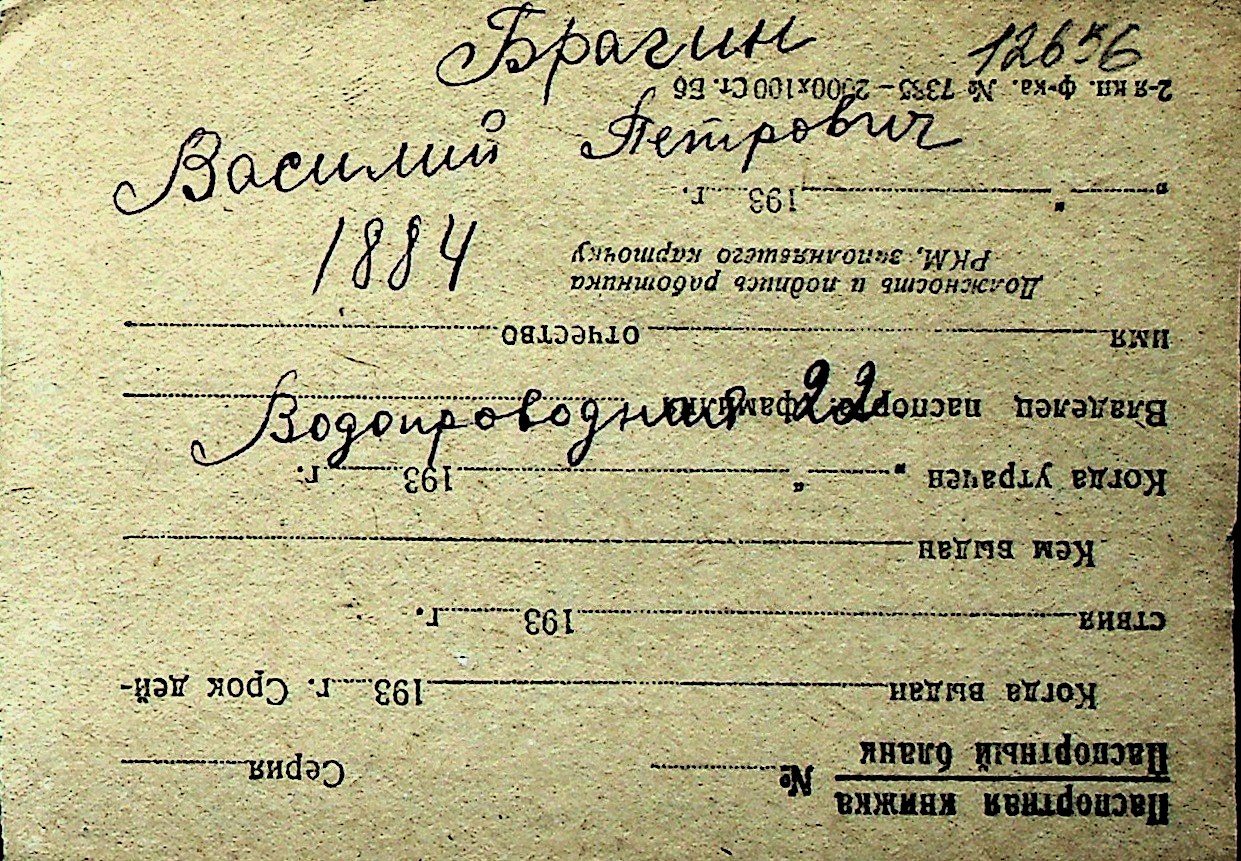 Брагин 12656
Василий Петрович
1884
Водопроводная 22
Паспортная книжка
Паспортный бланк
№ Серия
Когда выдан 193 г. Срок дей-
ствия 193 г.
Кем выдан
Когда утрачен „ “ 193 г.
Владелец паспорта: фамилия
имя отчество
Должность и подпись работника
РКМ, заполнявшего карточку
„ “ 193 г.
2-я кн. ф-ка. № 7335—2500х100 Ст. Бб